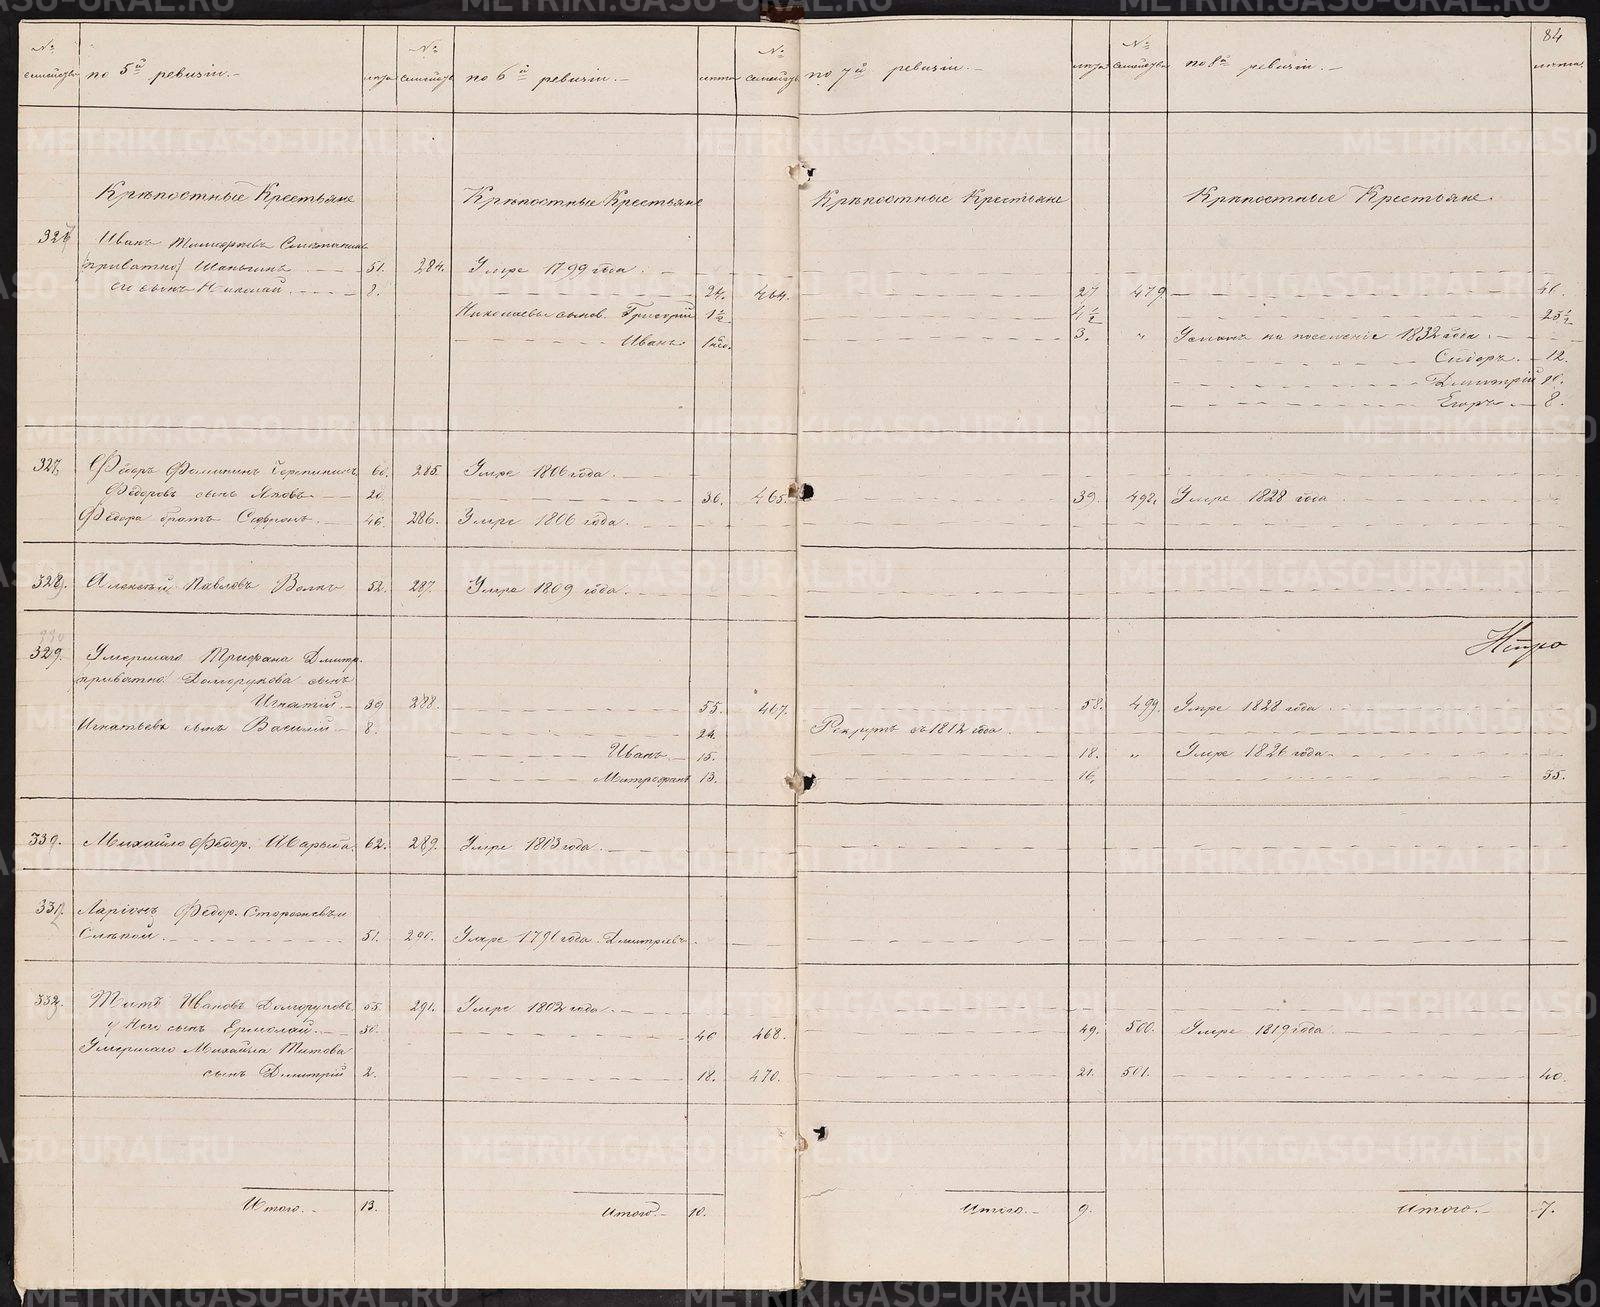 84
№ семейства по 5й ревизіи. лѣта № семейства по 6й ревизіи. лѣта № семейства по 7й ревизіи. лѣта № семейства по 8й ревизіи. лѣта
Крѣпостные Крестьяне Крѣпостные Крестьяне Крѣпостные Крестьяне Крѣпостные Крестьяне.
Иванъ
51. 284. Умре 1799 года.
сынъ Николай 8. 24. 464. 27 479 46.
Николаевы сынов. Григорій 1½ 4½ 23½
Иванъ 1 3. " на поселеніе 1832 года.
Сидоръ. 12.
Дмитрій 10.
Егоръ 8.
327. Ѳедоръ 60. 285. Умре 1806 года.
Ѳедоровъ сынъ Яковъ 20. 36. 465. 39. 492. Умре 1828 года
Ѳедора братъ Софронъ. 46. 286. Умре 1806 года.
328. Алексѣй Павловъ Волкъ 52. 287. Умре 1809 года.
329. Умершаго Трифана Дмитр.
приватно Долгорукова сынъ
Игнатій. 39 288. 55. 467. 58. 499. Умре 1828 года
Игнатьевъ сынъ Василій 8. 24. Рекрутъ съ 1812 года
Иванъ 15. 18. " Умре 1826 года
Митрофанъ 13. 16. 35.
330. Михайло Ѳедор. 62. 289. Умре 1813 года.
331. Ларіонъ Ѳедор. Сторожевъ и
Слѣпой. 51. 290. Умре 1791 года. Дмитріевъ
332. Титъ Ивановъ Долгоруковъ 55. 291. Умре 1802 года.
у него сынъ Ермолай. 30. 46 468. 49. 500. Умре 1819 года.
Умершаго Михайла Титова
сынъ Димитрій 2. 18. 470. 21. 501. 40.
Итого. 13. Итого. 10. Итого. 9. Итого. 7.
METRIKI.GASO-URAL.RU